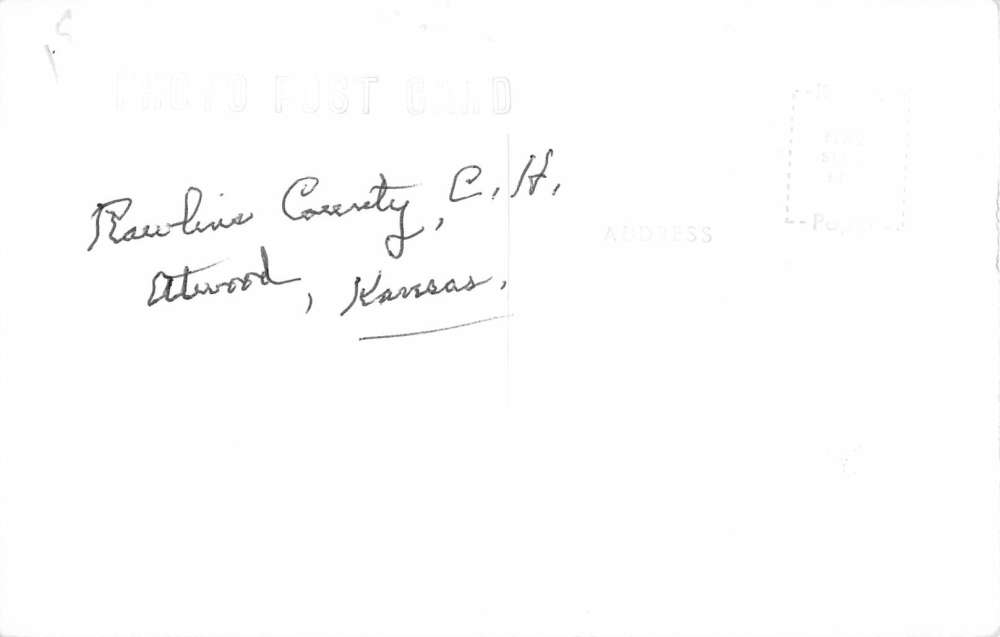 PHOTO POST CARD
Rawlins County, C. H.
Atwood, Kansas.
ADDRESS